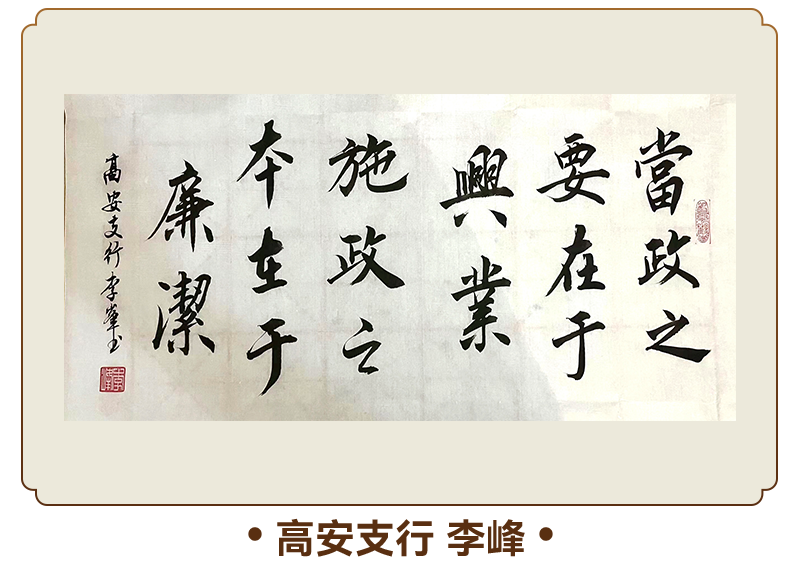 當政之
要在于
興業
施政之
本在于
廉潔
高安支行李峯书
• 高安支行 李峰 •